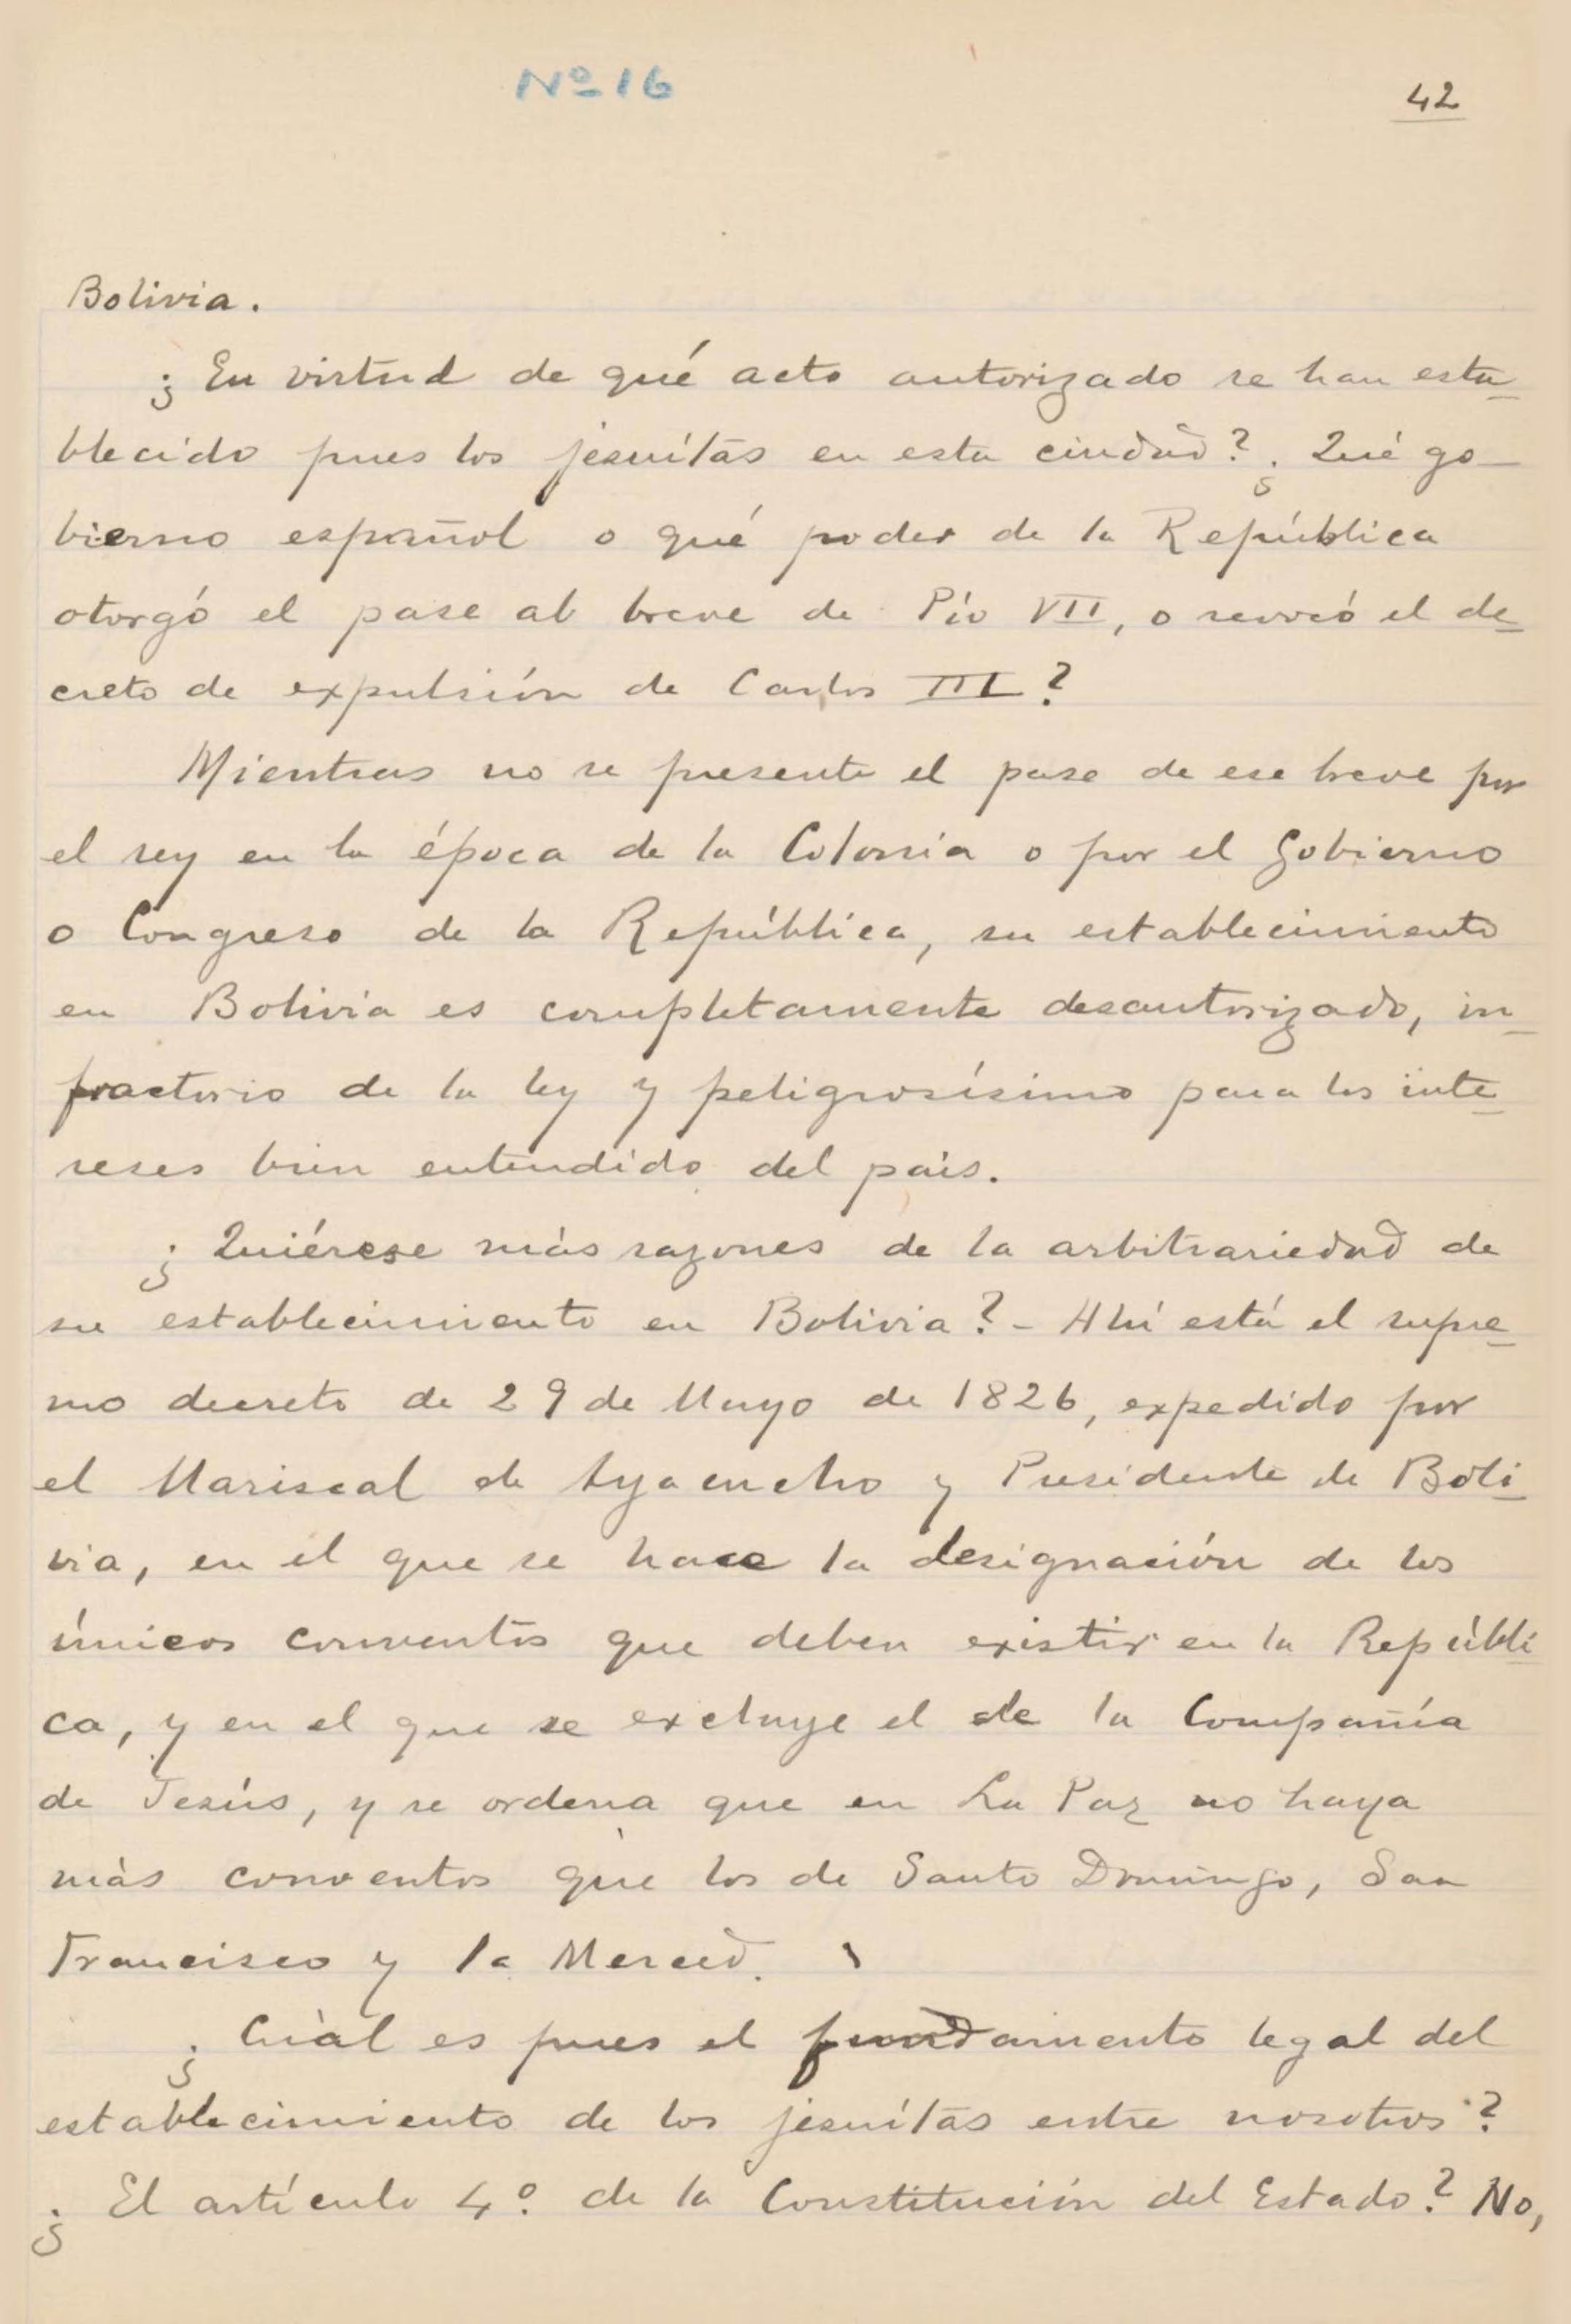 Nº 16
42
Bolivia.
¿En virtud de qué acto autorizado se han esta-
blecido pues los jesuítas en esta ciudad? ¿Qué go-
bierno español o qué poder de la República
otorgó el pase al breve de Pío VII, o revocó el de-
creto de expulsión de Carlos III?
Mientras no se presente el pase de ese breve por
el rey en la época de la Colonia o por el Gobierno
o Congreso de la República, su establecimiento
en Bolivia es completamente desautorizado, in-
fractorio de la ley y peligrosísimo para los inte-
reses bien entendido del país.
¿Quiérese más razones de la arbitrariedad de
su establecimiento en Bolivia? - Ahí está el supre-
mo decreto de 29 de Mayo de 1826, expedido por
el Mariscal de Ayacucho y Presidente de Boli-
via, en el que se hace la designación de los
únicos conventos que deben existir en la Repúbli-
ca, y en el que se excluye el de la Compañía
de Jesús, y se ordena que en La Paz no haya
más conventos que los de Santo Domingo, San
Francisco y la Merced.
¿Cuál es pues el fundamento legal del
establecimiento de los jesuítas entre nosotros?
¿El artículo 4º. de la Constitución del Estado? No,